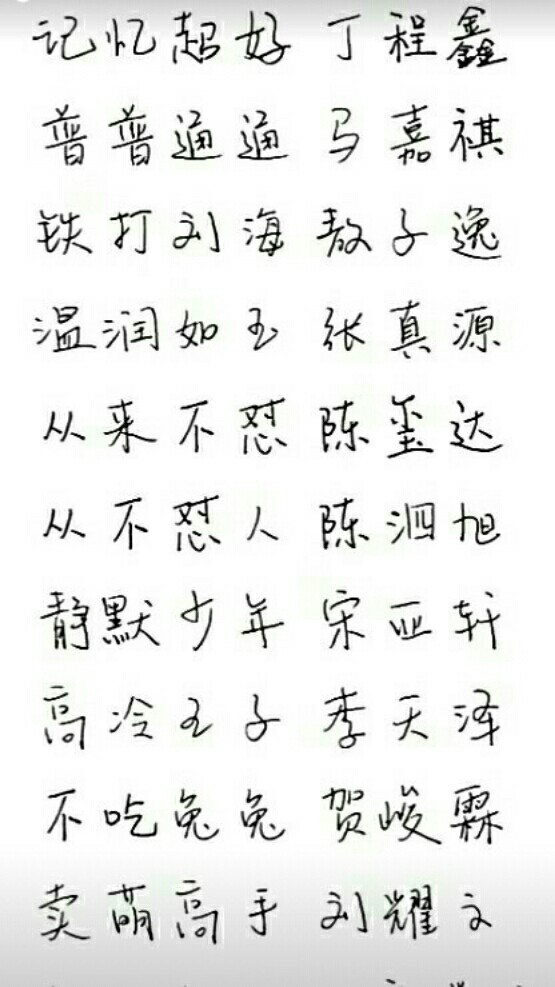 记忆超好 丁程鑫
普普通通 马嘉祺
铁打刘海 敖子逸
温润如玉 张真源
从来不怼 陈玺达
从不怼人 陈泗旭
静默少年 宋亚轩
高冷王子 李天泽
不吃兔兔 贺峻霖
卖萌高手 刘耀文